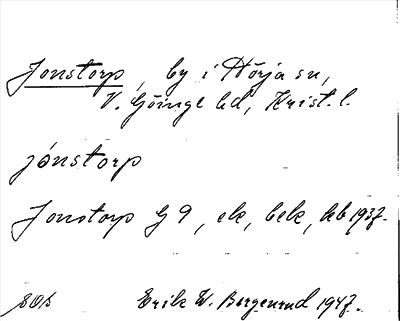 Jonstorp, by i Hörja sn,
V. Göinge hd, Krist. l.
jónstorp
Jonstorp G 9, ek, bek, hb 1937.
Erik W. Bergenrud 1947.